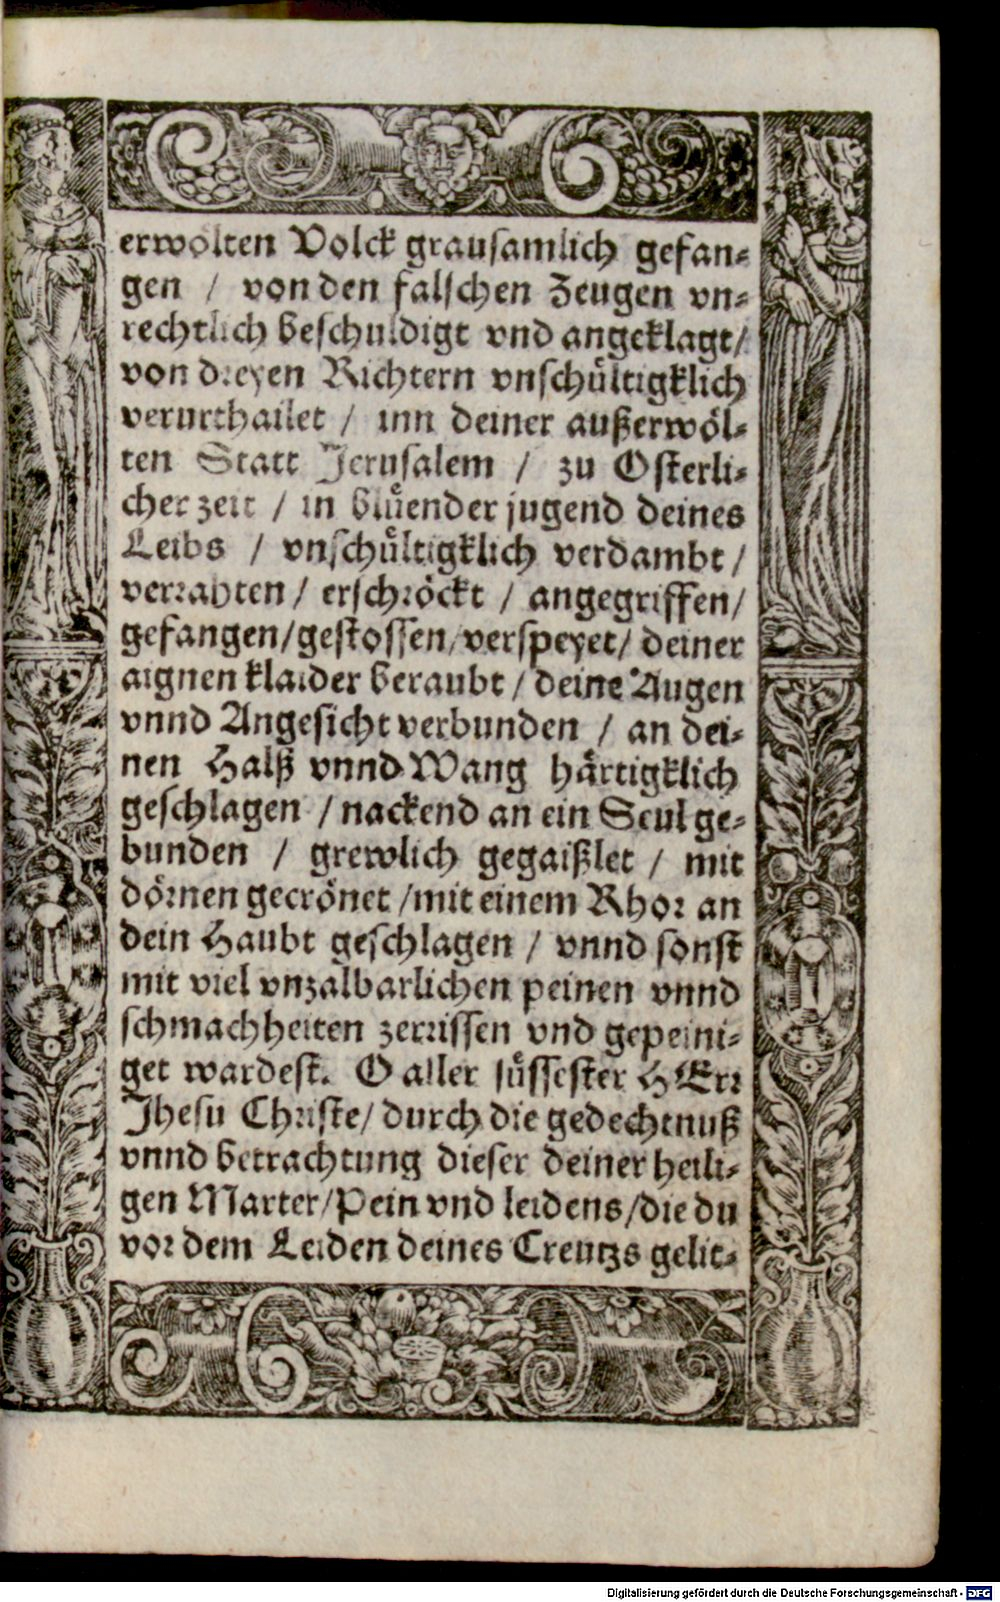 erwölten Volck grausamlich gefan-
gen / von den falschen Zeugen vn-
rechtlich beschuldigt vnd angeklagt/
von dreyen Richtern vnschültigklich
verurthailet / inn deiner außerwöl-
ten Statt Jerusalem / zu Osterli-
cher zeit / in blüender jugend deines
Leibs / vnschültigklich verdambt /
verrahten / erschröckt / angegriffen/
gefangen/gestossen/verspeyet/ deiner
aignen klaider beraubt / deine Augen
vnnd Angesicht verbunden / an dei-
nen Halß vnnd Wang härtigklich
geschlagen / nackend an ein Seul ge-
bunden / grewlich gegaißlet / mit
dörnen gecrönet / mit einem Rhor an
dein Haubt geschlagen / vnnd sonst
mit viel vnzalbarlichen peinen vnnd
schmachheiten zerrissen vnd gepeini-
get wardest. O aller süssester HErr
Jhesu Christe/ durch die gedechtnuß
vnnd betrachtung dieser deiner heili-
gen Marter/Pein vnd leidens/die du
vor dem Leiden deines Creutzs gelit-
Digitalisierung gefördert durch die Deutsche Forschungsgemeinschaft - DFG